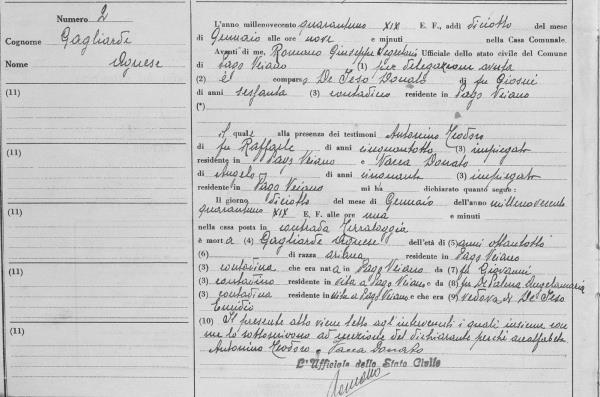 Numero 2
Cognome Gagliarde
Nome Agnese
(11)
(11)
(11)
(11)
L'anno millenovecento quarantuno XIX E. F., addì diciotto del mese
di Gennaio alle ore nove e minuti nella Casa Comunale.
Avanti di me, Romano Giuseppe Segretario Ufficiale dello stato civile del Comune
di Pago Veiano (1) per delegazione avuta
(2) è compars o De Ieso Donato di fu Giosuè
di anni sessanta (3) contadino residente in Pago Veiano
(*)
il quale alla presenza dei testimoni Antonino Teodoro
di fu Raffaele di anni cinquantotto (3) impiegato
residente in Pago Veiano e Vacca Donato
di Angelo di anni cinquanta (3) impiegato
residente in Pago Veiano mi ha dichiarato quanto segue:
Il giorno diciotto del mese di Gennaio dell'anno millenovecento
quarantuno XIX E. F. alle ore una e minuti
nella casa posta in contrada Terraloggia
è mort a (4) Gagliarde Agnese dell'età di (5) anni ottantotto
(6) di razza ariana residente in Pago Veiano
(3) contadina che era nat a in Pago Veiano da (7) fu Giovanni
(3) contadino residente in vita a Pago Veiano e da (8) fu De Palma Angelamaria
(3) contadina residente in vita a Pago Veiano e che era (9) Vedova di De Ieso
Emidio
(10) Il presente atto viene letto agl'intervenuti i quali insieme con
me lo sottoscrivono ad eccezione del dichiarante perché analfabeta
Antonino Teodoro Vacca Donato
L'Ufficiale dello Stato Civile
Romano